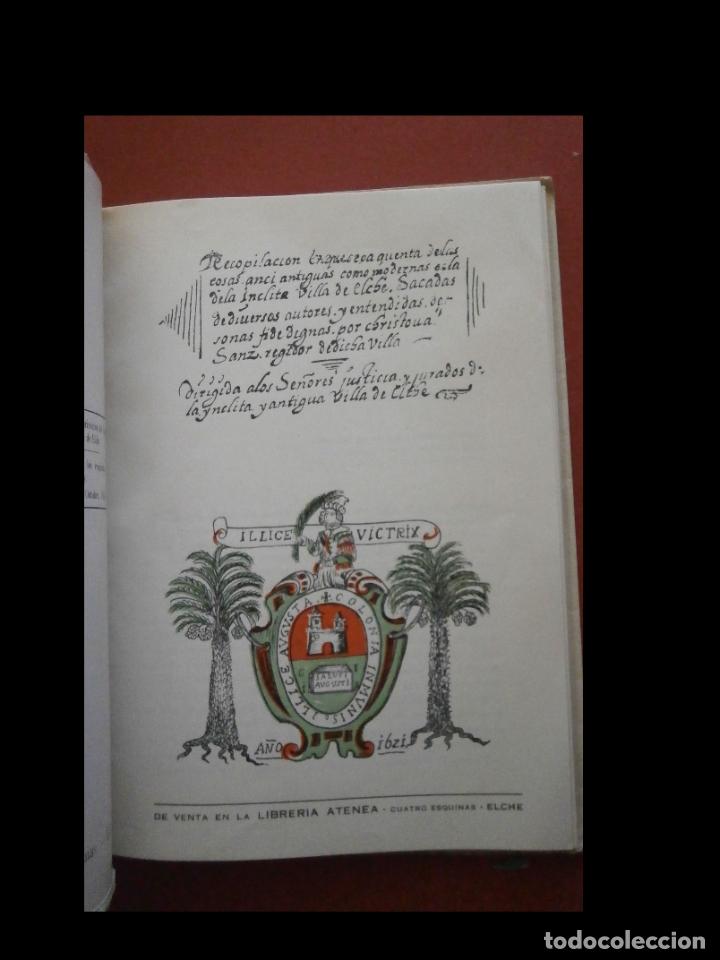 Recopilacion en que se da quenta de las
cosas anci antiguas como modernas de la
de la Inclita Villa de Elche. Sacadas
de diversos autores. y entendidas. de
sonas fide dignas. por christova
Sanz. regidor de dicha Villa
Dirigida a los Señores justicia. y jurados d
la ynclita y antigua Villa de Elche
ILLICE VICTRIX
ILLICE AVGVSTA COLONIA INMVNIS
C I
I A
SALVTI
AVGVSTI
AÑO 1621
DE VENTA EN LA LIBRERIA ATENEA - CUATRO ESQUINAS - ELCHE
de Elche
todocoleccion
todocoleccion.net